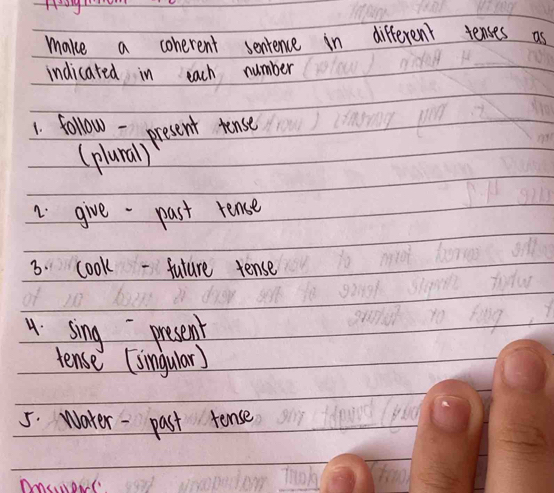 Make a coherent sentence in different tenses as
indicated in each number
1. follow - present tense
(plural)
2. give - past tense
3. cook - future tense
4. Sing - present
tense (singular)
5. Water - past tense
Answers: